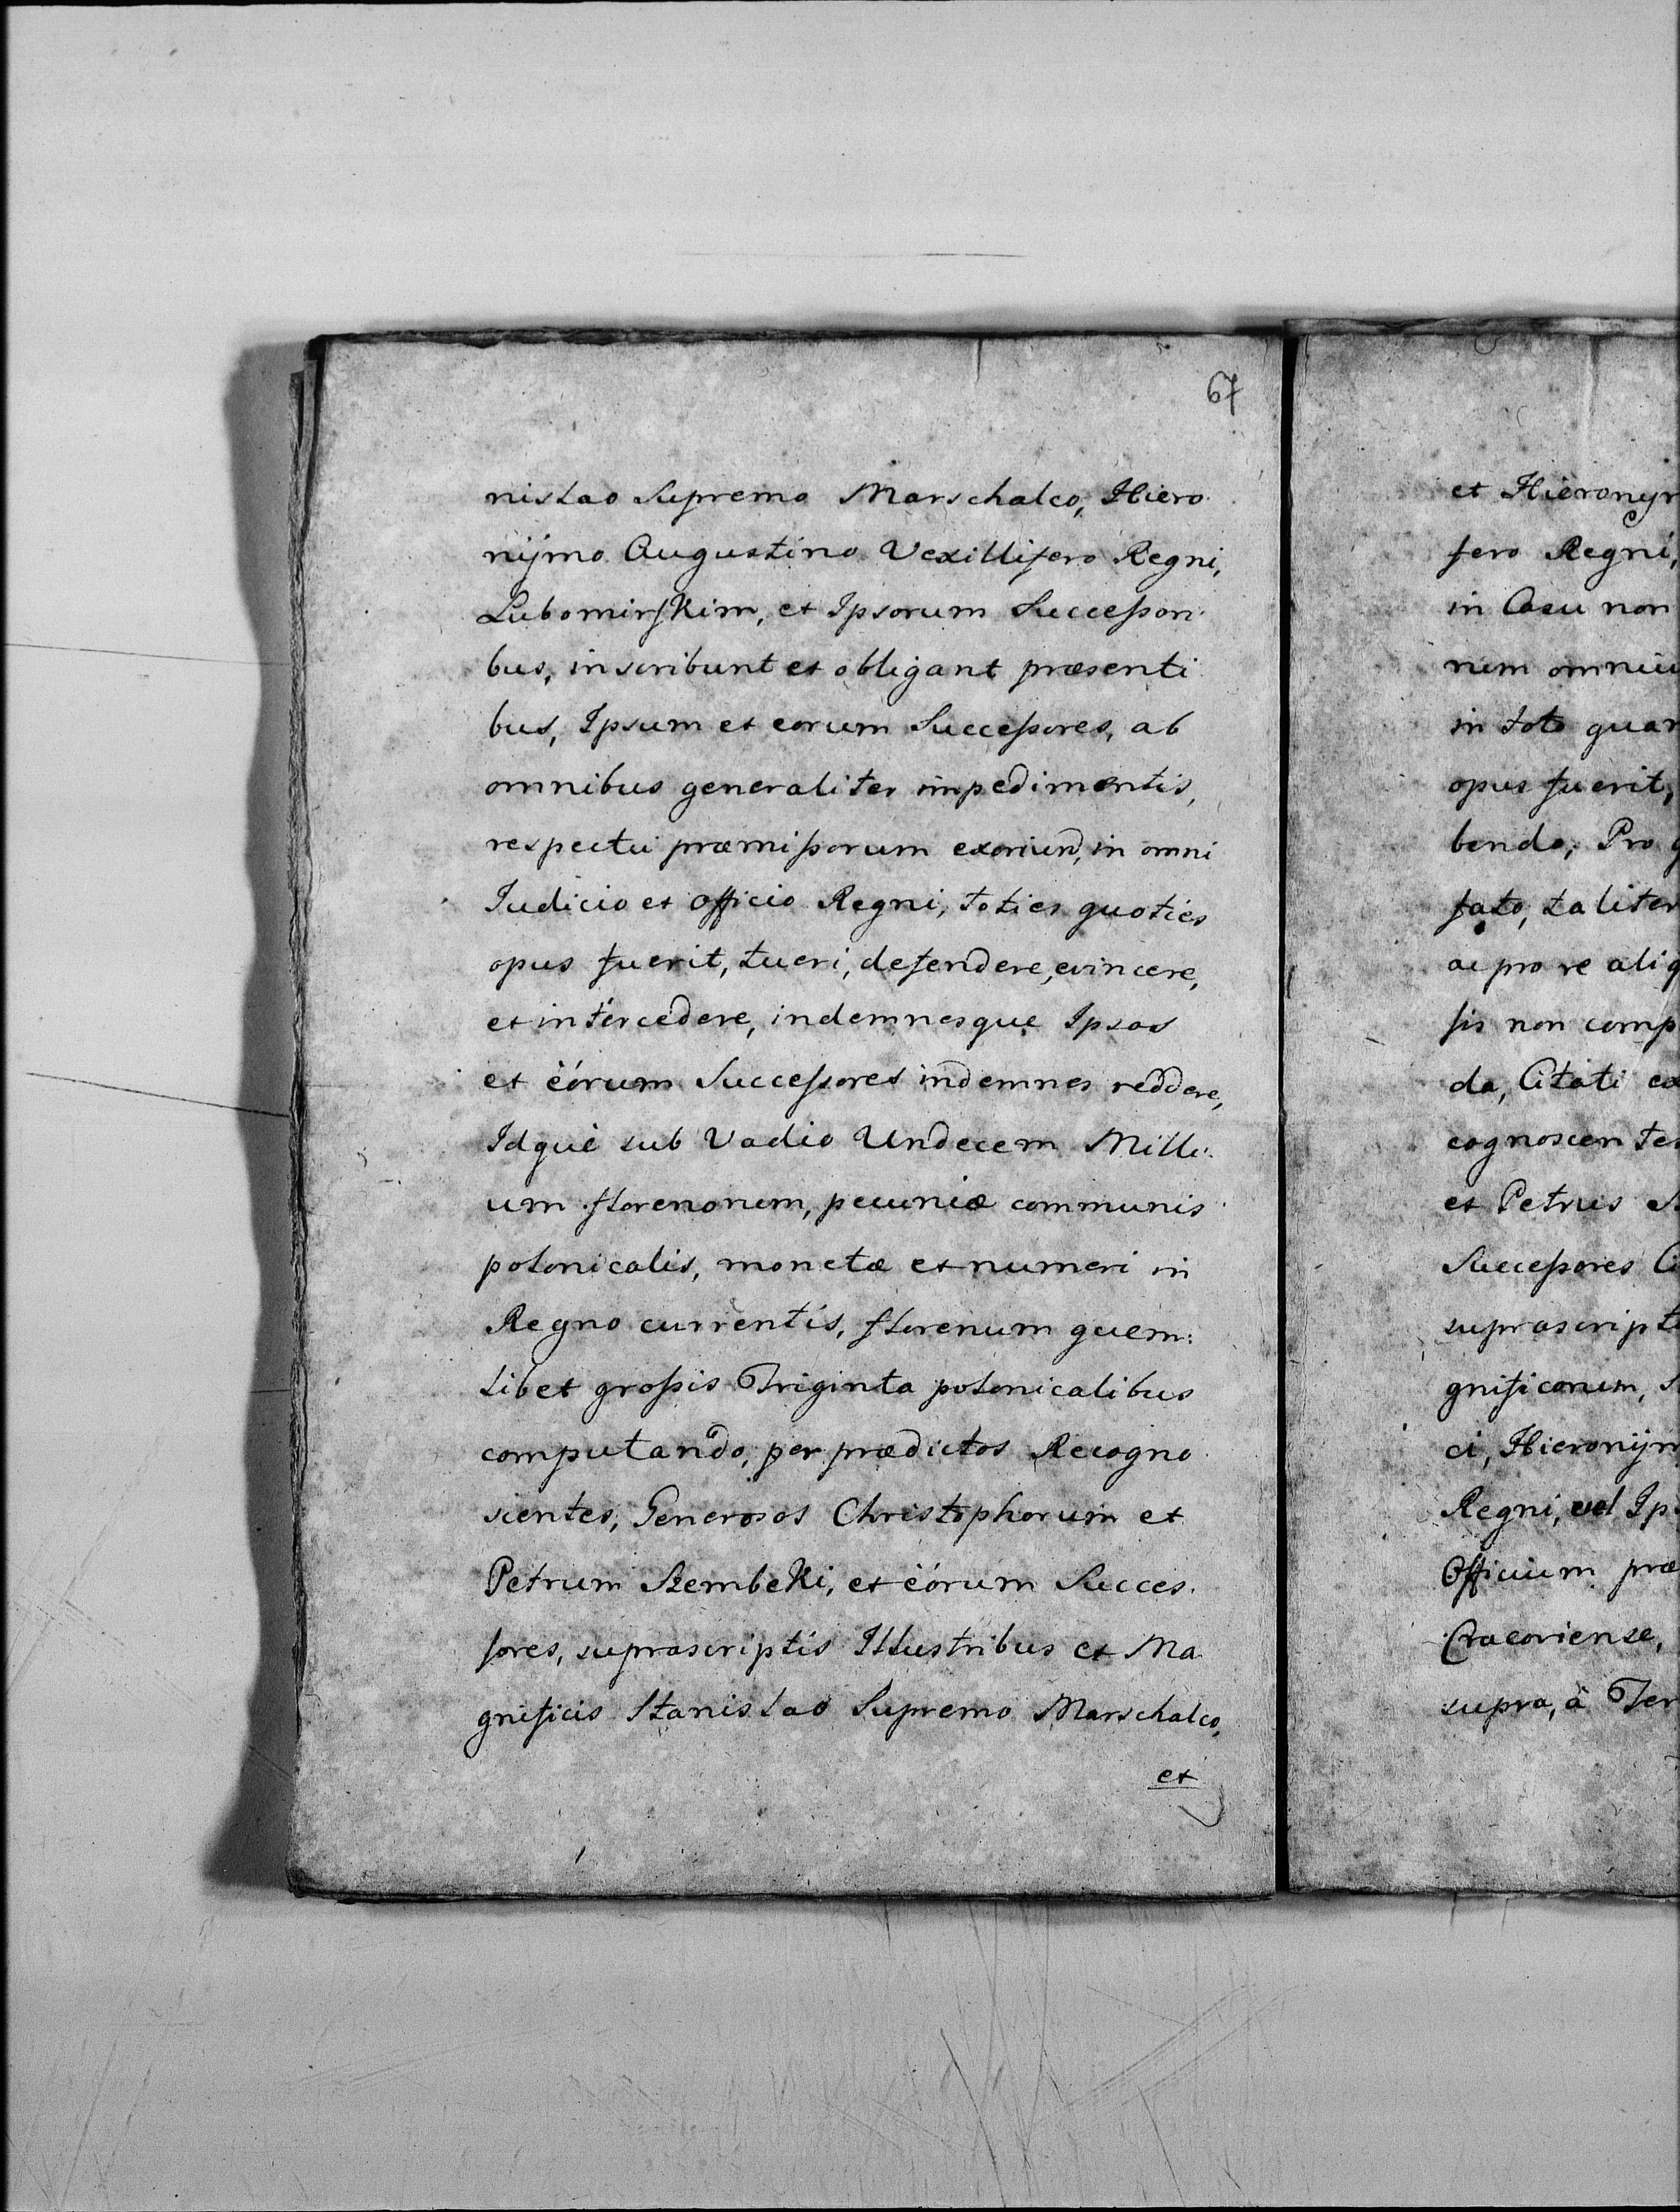 67
nislao Supremo Marschalco, Hiero
nijmo Augustino Vexillifero Regni,
Lubomirskim, et Ipsorum Successori
bus, inscribunt et obligant præsenti
bus, Ipsum et eorum Successores, ab
omnibus generaliter impedimentis,
respectu præmissorum exoriund, in omni
Iudicio et officio Regni, toties quoties
opus fuerit, tueri, defendere, evincere,
et intercedere, indemnesque Ipsos
et eórum Successores indemnes reddere,
Idquè sub Vadio Undecem Milli
um florenorum, pecuniæ communis
polonicalis, monetæ et numeri in
Regno currentis, florenum quem:
libet grossis Triginta polonicalibus
computando, per prædictos Recogno
scientes, Generosos Christophorum et
Petrum Szembeki, et eórum Succes
sores, suprascriptis Illustribus et Ma
gnificis Stanislao Supremo Marschalco,
et
et Hieronym
fero Regni,
in Casu non
nem omniu
in toto quar
opus fuerit,
bendo, Pro
fato, taliter
ac pro re aliq
sis non comp
da, Citati
cognoscentes
et Petrus
Successores
suprascripti
gnificorum,
ci, Hieronijm
Regni, vel Ip
Officium præ
Cracoviense,
supra, à Ter